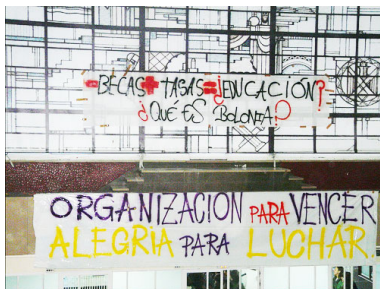 -BECAS+TASAS=¿EDUCACIÓN?
¿QUÉ ES BOLONIA?
ORGANIZACION PARA VENCER
ALEGRIA PARA LUCHAR